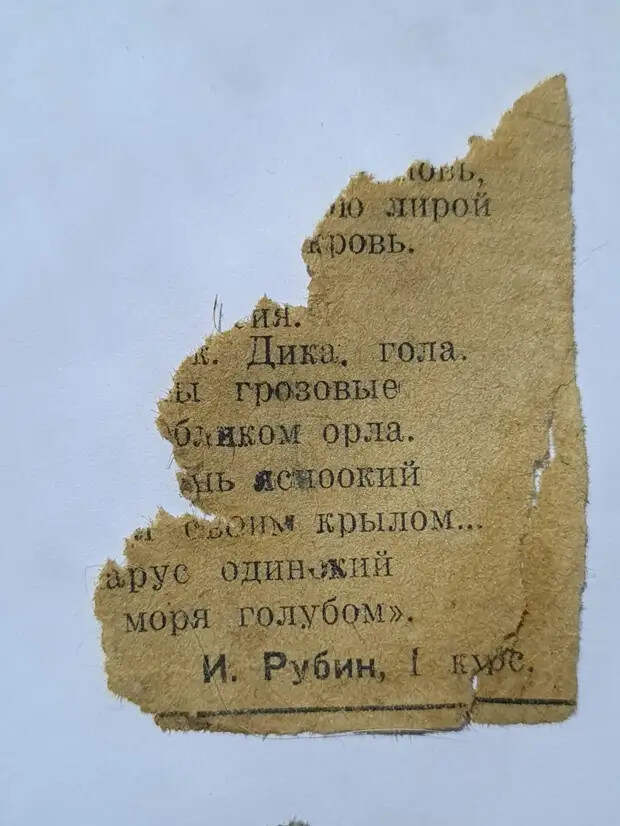 лирой
кровь.
Дика, гола.
грозовые
бликом орла.
нь ясноокий
своим крылом...
арус одинокий
моря голубом».
И. Рубин, I курс.